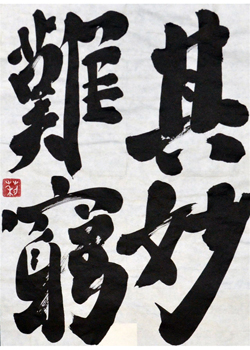 其妙
難窮